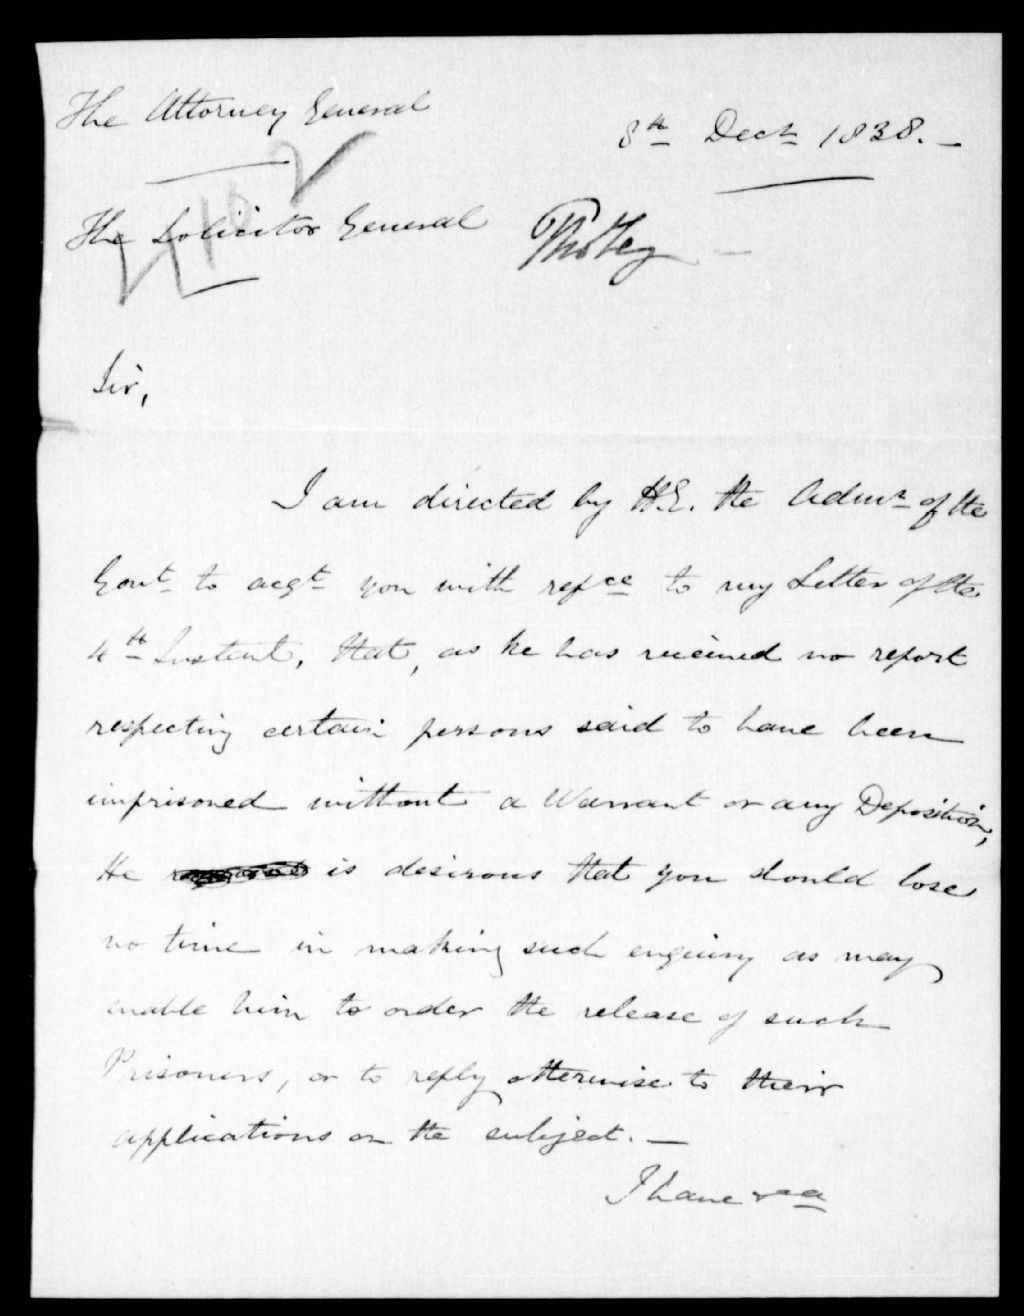 The Attorney General
8th Decr 1838. —
The Solicitor General
Sir,
I am directed by H.E. the Admr of the
Govt to acqt you with refce to my Letter of the
4th Instant, that, as he has received no report
respecting certain persons said to have been
imprisoned without a Warrant or any Deposition,
He is desirous that you should lose
no time in making such enquiry as may
enable him to order the release of such
Prisoners, or to reply otherwise to their
applications on the subject. —
I have &ca